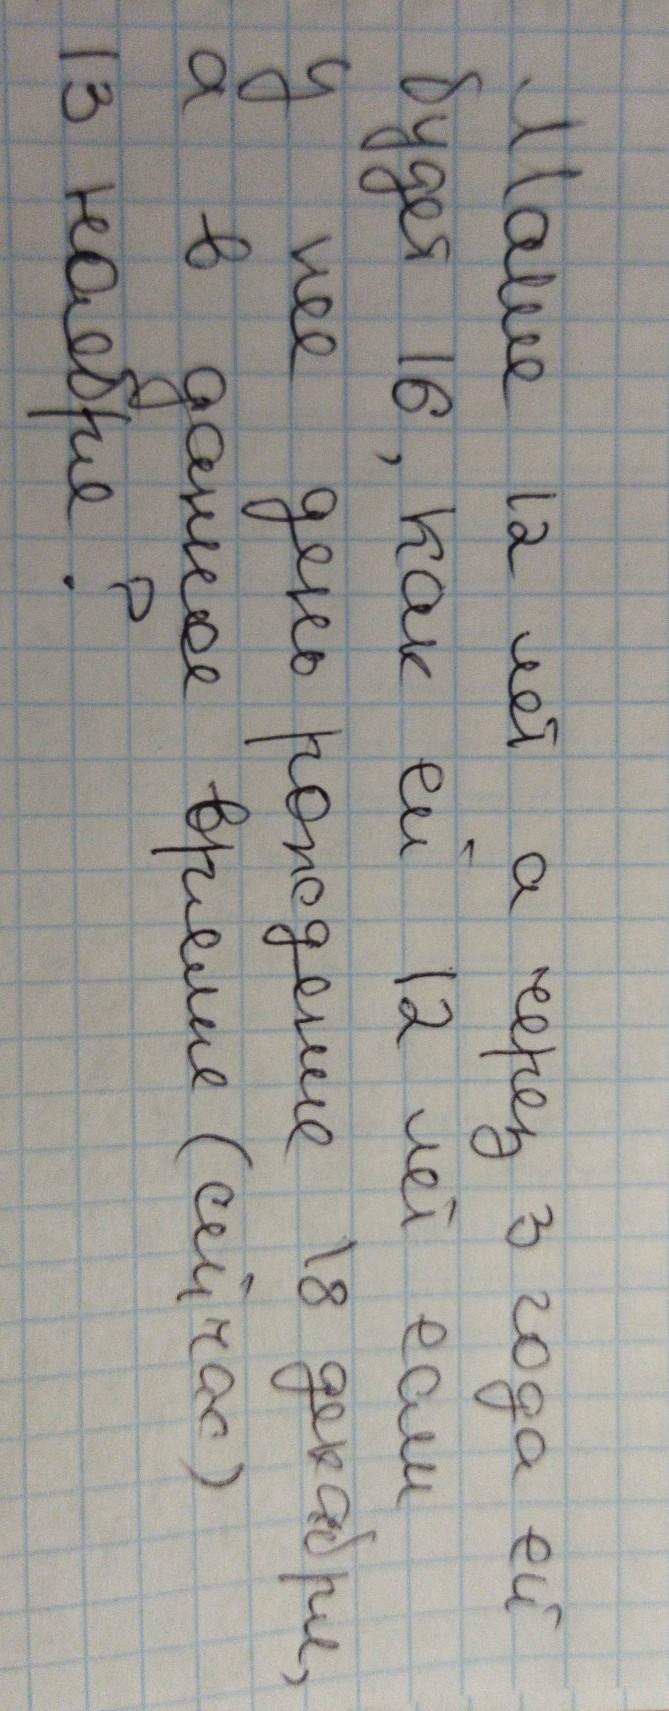 Маше 12 лет а через 3 года ей
будет 16, как ей 12 лет если
у нее день рождение 18 декабря,
а в данное время (сейчас)
13 ноября?